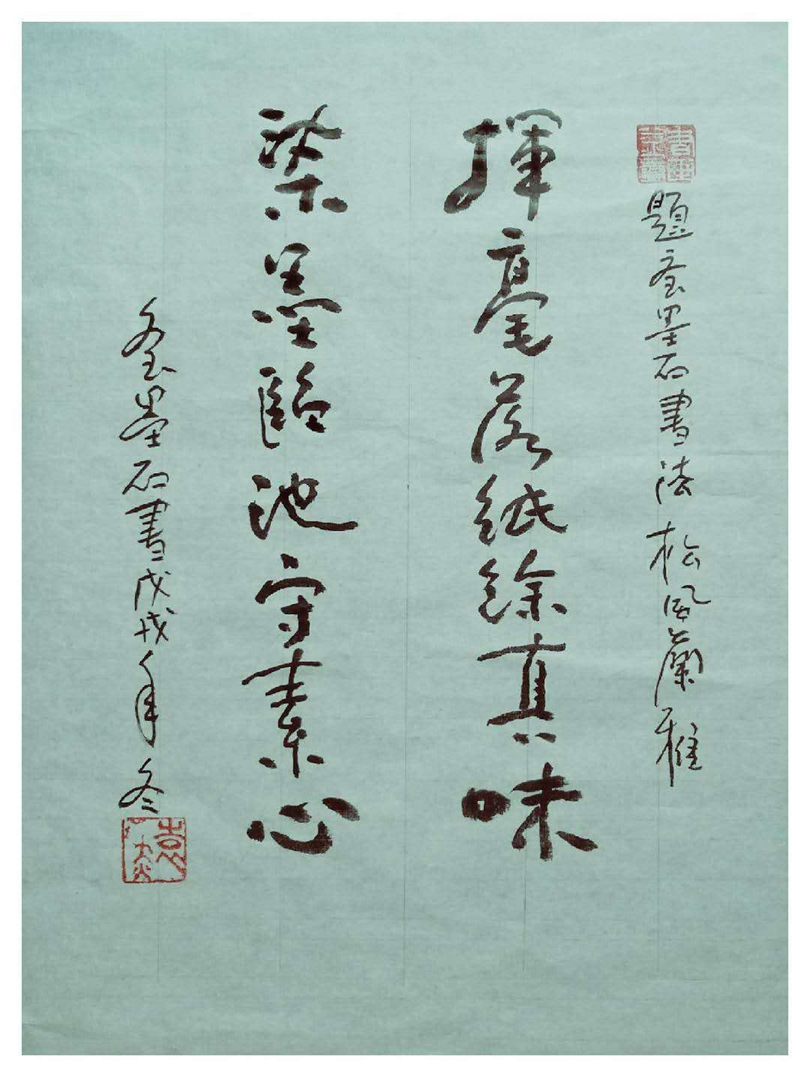 題金墨石書法 松风蘭雅
揮毫落紙餘真味
染墨臨池守素心
金墨石書戊戌年冬